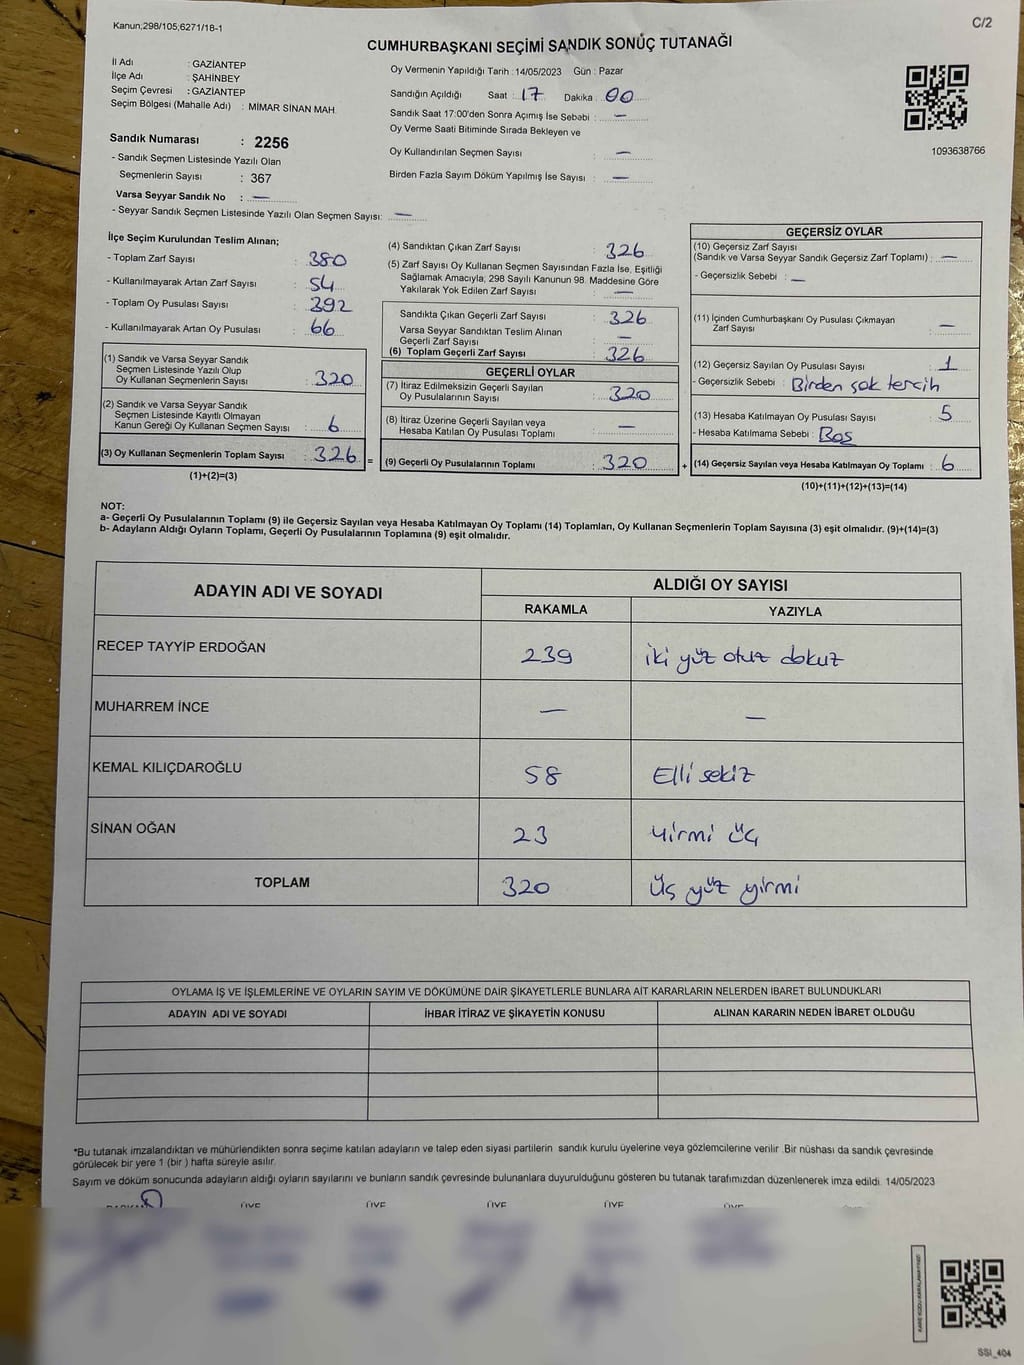 Kanun;298/105;6271/18-1
C/2
CUMHURBAŞKANI SEÇİMİ SANDIK SONUÇ TUTANAĞI
İl Adı : GAZİANTEP
İlçe Adı : ŞAHİNBEY
Seçim Çevresi : GAZİANTEP
Seçim Bölgesi (Mahalle Adı) : MİMAR SİNAN MAH.
Sandık Numarası : 2256
- Sandık Seçmen Listesinde Yazılı Olan
Seçmenlerin Sayısı : 367
Varsa Seyyar Sandık No : —
- Seyyar Sandık Seçmen Listesinde Yazılı Olan Seçmen Sayısı: —
Oy Vermenin Yapıldığı Tarih : 14/05/2023 Gün : Pazar
Sandığın Açıldığı Saat : 17 Dakika : 00
Sandık Saat 17:00'den Sonra Açımış İse Sebebi : —
Oy Verme Saati Bitiminde Sırada Bekleyen ve
Oy Kullandırılan Seçmen Sayısı : —
Birden Fazla Sayım Döküm Yapılmış İse Sayısı : —
1093638766
İlçe Seçim Kurulundan Teslim Alınan;
- Toplam Zarf Sayısı : 380
- Kullanılmayarak Artan Zarf Sayısı : 54
- Toplam Oy Pusulası Sayısı : 392
- Kullanılmayarak Artan Oy Pusulası : 66
(1) Sandık ve Varsa Seyyar Sandık
Seçmen Listesinde Yazılı Olup
Oy Kullanan Seçmenlerin Sayısı : 320
(2) Sandık ve Varsa Seyyar Sandık
Seçmen Listesinde Kayıtlı Olmayan
Kanun Gereği Oy Kullanan Seçmen Sayısı : 6
(3) Oy Kullanan Seçmenlerin Toplam Sayısı : 326 =
(1)+(2)=(3)
(4) Sandıktan Çıkan Zarf Sayısı : 326
(5) Zarf Sayısı Oy Kullanan Seçmen Sayısından Fazla İse, Eşitliği
Sağlamak Amacıyla; 298 Sayılı Kanunun 98. Maddesine Göre
Yakılarak Yok Edilen Zarf Sayısı : —
Sandıkta Çıkan Geçerli Zarf Sayısı : 326
Varsa Seyyar Sandıktan Teslim Alınan
Geçerli Zarf Sayısı : —
(6) Toplam Geçerli Zarf Sayısı : 326
GEÇERLİ OYLAR
(7) İtiraz Edilmeksizin Geçerli Sayılan
Oy Pusulalarının Sayısı : 320
(8) İtiraz Üzerine Geçerli Sayılan veya
Hesaba Katılan Oy Pusulası Toplamı : —
(9) Geçerli Oy Pusulalarının Toplamı : 320 +
GEÇERSİZ OYLAR
(10) Geçersiz Zarf Sayısı
(Sandık ve Varsa Seyyar Sandık Geçersiz Zarf Toplamı) : —
- Geçersizlik Sebebi : —
(11) İçinden Cumhurbaşkanı Oy Pusulası Çıkmayan
Zarf Sayısı : —
(12) Geçersiz Sayılan Oy Pusulası Sayısı : 1
- Geçersizlik Sebebi : Birden çok tercih
(13) Hesaba Katılmayan Oy Pusulası Sayısı : 5
- Hesaba Katılmama Sebebi : Boş
(14) Geçersiz Sayılan veya Hesaba Katılmayan Oy Toplamı : 6
(10)+(11)+(12)+(13)=(14)
NOT:
a- Geçerli Oy Pusulalarının Toplamı (9) ile Geçersiz Sayılan veya Hesaba Katılmayan Oy Toplamı (14) Toplamları, Oy Kullanan Seçmenlerin Toplam Sayısına (3) eşit olmalıdır. (9)+(14)=(3)
b- Adayların Aldığı Oyların Toplamı, Geçerli Oy Pusulalarının Toplamına (9) eşit olmalıdır.
ADAYIN ADI VE SOYADI ALDIĞI OY SAYISI
RAKAMLA YAZIYLA
RECEP TAYYİP ERDOĞAN 239 iki yüz otuz dokuz
MUHARREM İNCE — —
KEMAL KILIÇDAROĞLU 58 Elli sekiz
SİNAN OĞAN 23 Yirmi üç
TOPLAM 320 Üç yüz yirmi
OYLAMA İŞ VE İŞLEMLERİNE VE OYLARIN SAYIM VE DÖKÜMÜNE DAİR ŞİKAYETLERLE BUNLARA AİT KARARLARIN NELERDEN İBARET BULUNDUKLARI
ADAYIN ADI VE SOYADI İHBAR İTİRAZ VE ŞİKAYETİN KONUSU ALINAN KARARIN NEDEN İBARET OLDUĞU
*Bu tutanak imzalandıktan ve mühürlendikten sonra seçime katılan adayların ve talep eden siyasi partilerin sandık kurulu üyelerine veya gözlemcilerine verilir. Bir nüshası da sandık çevresinde
görülecek bir yere 1 (bir ) hafta süreyle asılır.
Sayım ve döküm sonucunda adayların aldığı oyların sayılarını ve bunların sandık çevresinde bulunanlara duyurulduğunu gösteren bu tutanak tarafımızdan düzenlenerek imza edildi. 14/05/2023
ÜYE ÜYE ÜYE ÜYE ÜYE
SSİ_404